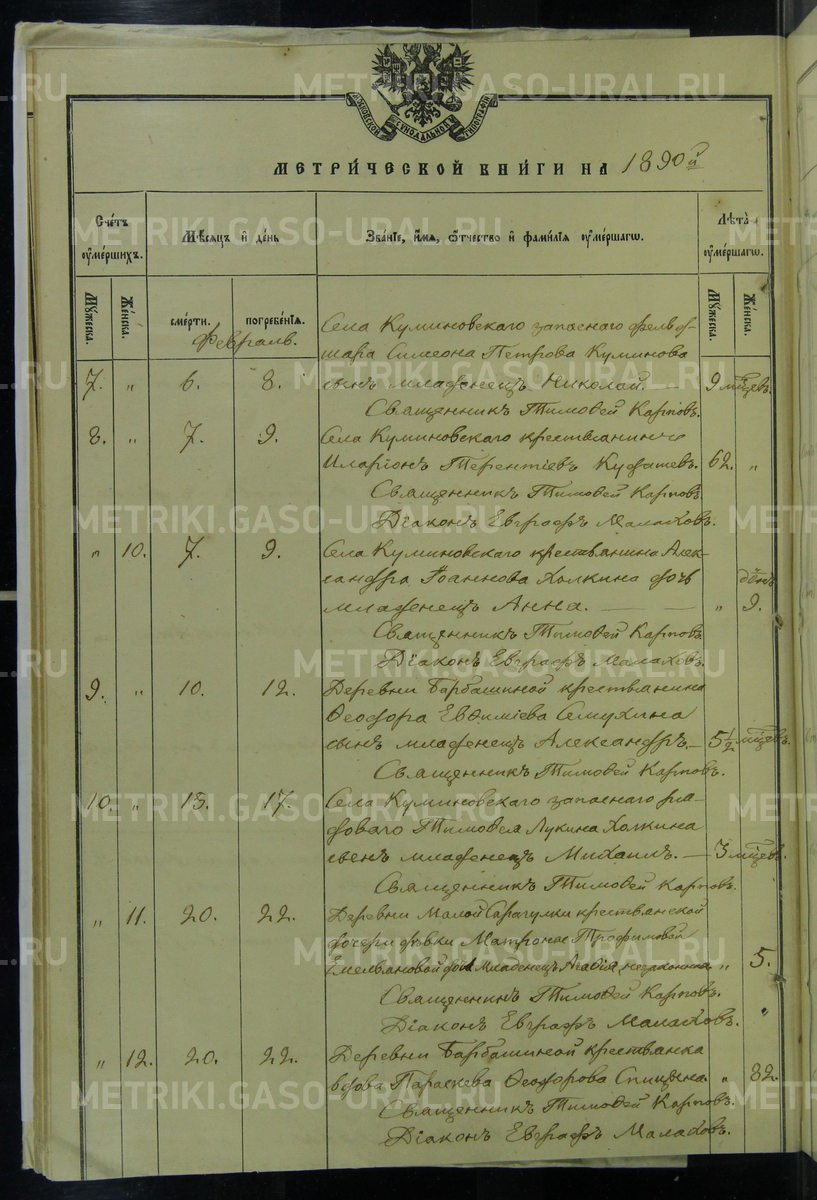 МОСКОВСКОЙ СУНОДАЛЬНОЙ ТИПОГРАФІИ
МЕТРИ́ЧЕСКОЙ КНИ́ГИ НА 1890й
Сче́тъ ᲂу҆ме́ршихъ.
Мѣ́сяцъ и҆ де́нь
Зва́нїе, и҆́мя, ѻ҆́тчество и҆ фами́лїя ᲂу҆ме́ршагѡ.
Лѣ̀та ᲂу҆ме́ршагѡ.
Мꙋ́жеска.
Же́нска.
сме́рти.
погребе́нїя.
Мꙋ́жеска.
Же́нска.
Февраль.
Села Куминовскаго запаснаго фельд-
шара Симеона Петрова Куминова
7. „ 6. 8. сынъ младенецъ Николай. — 9 мѣсцевъ.
Священникъ Тимоѳей Карповъ.
8. „ 7. 9. Села Куминовскаго крестьянинъ
Иларіонъ Терентіевъ 62. „
Священникъ Тимоѳей Карповъ.
Діаконъ Евграфъ Малаховъ.
„ 10. 7. 9. Села Куминовскаго крестьянина Алек-
сандра Іоаннова Холкина дочь
младенецъ Анна. — — „ 9. дней
Священникъ Тимоѳей Карповъ.
Діаконъ Евграфъ Малаховъ.
9. „ 10. 12. Деревни Барбашиной крестьянина
Ѳеодора Евѳиміева Семухина
сынъ младенецъ Александръ. — 5½ мѣсцевъ.
Священникъ Тимоѳей Карповъ.
10. „ 15. 17. Села Куминовскаго запаснаго ря-
доваго Тимоѳея Лукина Холкина
сынъ младенецъ Михаилъ. — 3 мѣсцевъ.
Священникъ Тимоѳей Карповъ.
„ 11. 20. 22. Деревни Малой Сарагулки крестьянской
дочери дѣвки Матроны Трофимовой
Емельяновой дочь младенецъ Агаѳія незаконна. „ 5. „
Священникъ Тимоѳей Карповъ.
Діаконъ Евграфъ Малаховъ.
„ 12. 20. 22. Деревни Барбашиной крестьянка
вдова Параскева Ѳеодорова Спицына. „ 82.
Священникъ Тимоѳей Карповъ.
Діаконъ Евграфъ Малаховъ.
METRIKI.GASO-URAL.RU